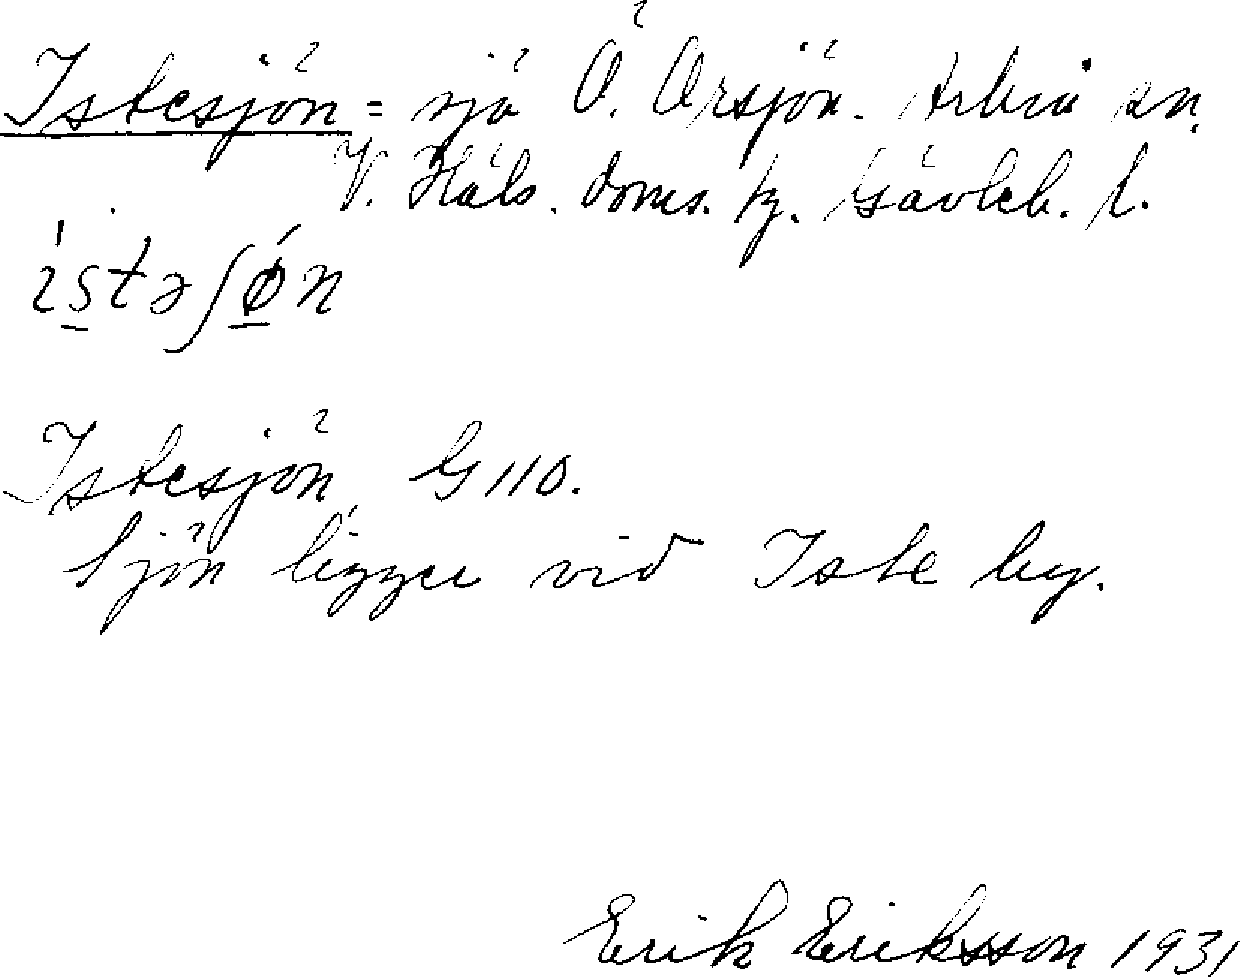 Istesjön = sjö Ö. Örsjön. Arbrå sn.
V. Häls. doms. hz. Gävleb. l.
ístəʃǿn
Istesjön G 110.
Sjön ligger vid Iste by.
Erik Eriksson 1931